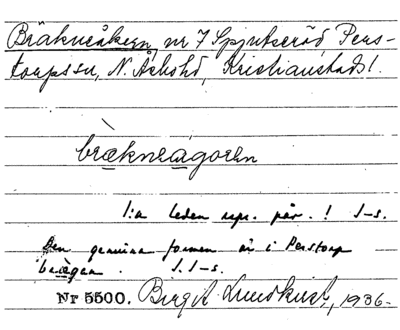 Bräkneåkern, nr 7 Spjutseröd, Pers-
torps sn, N. Åsbohd, Kristianstads l.
brækneagorn
1:a leden upr. när. ! J-s.
Den genuina formen är i Perstorp
J. J-s.
Nr 5500. Birgit Lundkvist, 1936.